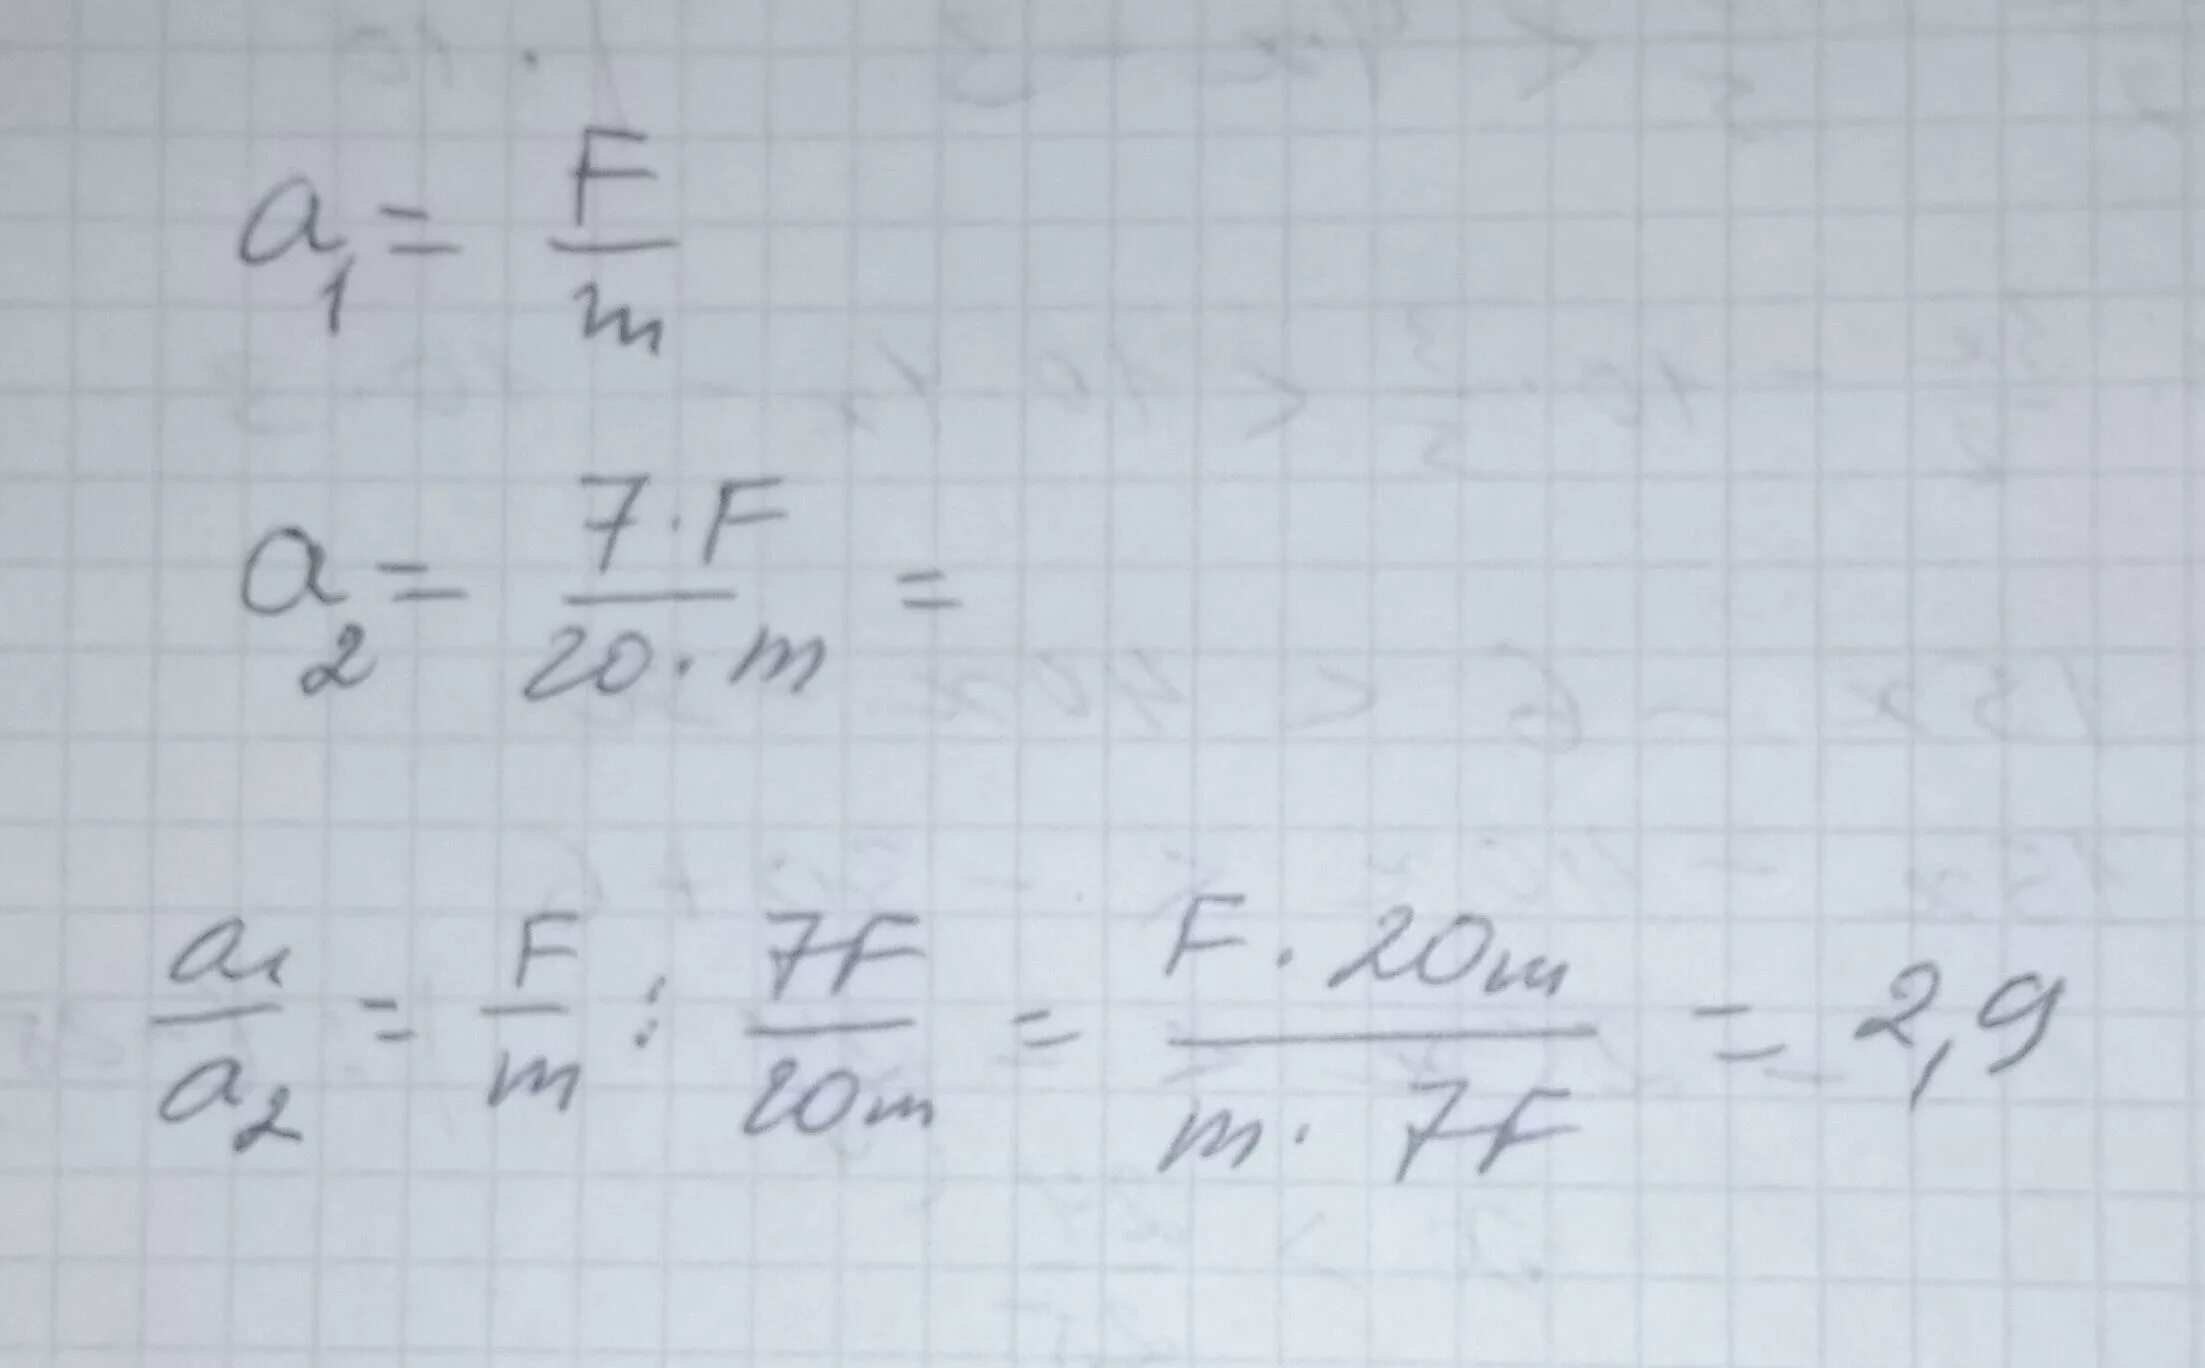 a₁ = F/m
a₂ = 7·F/20·m =
a₁/a₂ = F/m : 7F/20m = F·20m/m·7F = 2,9